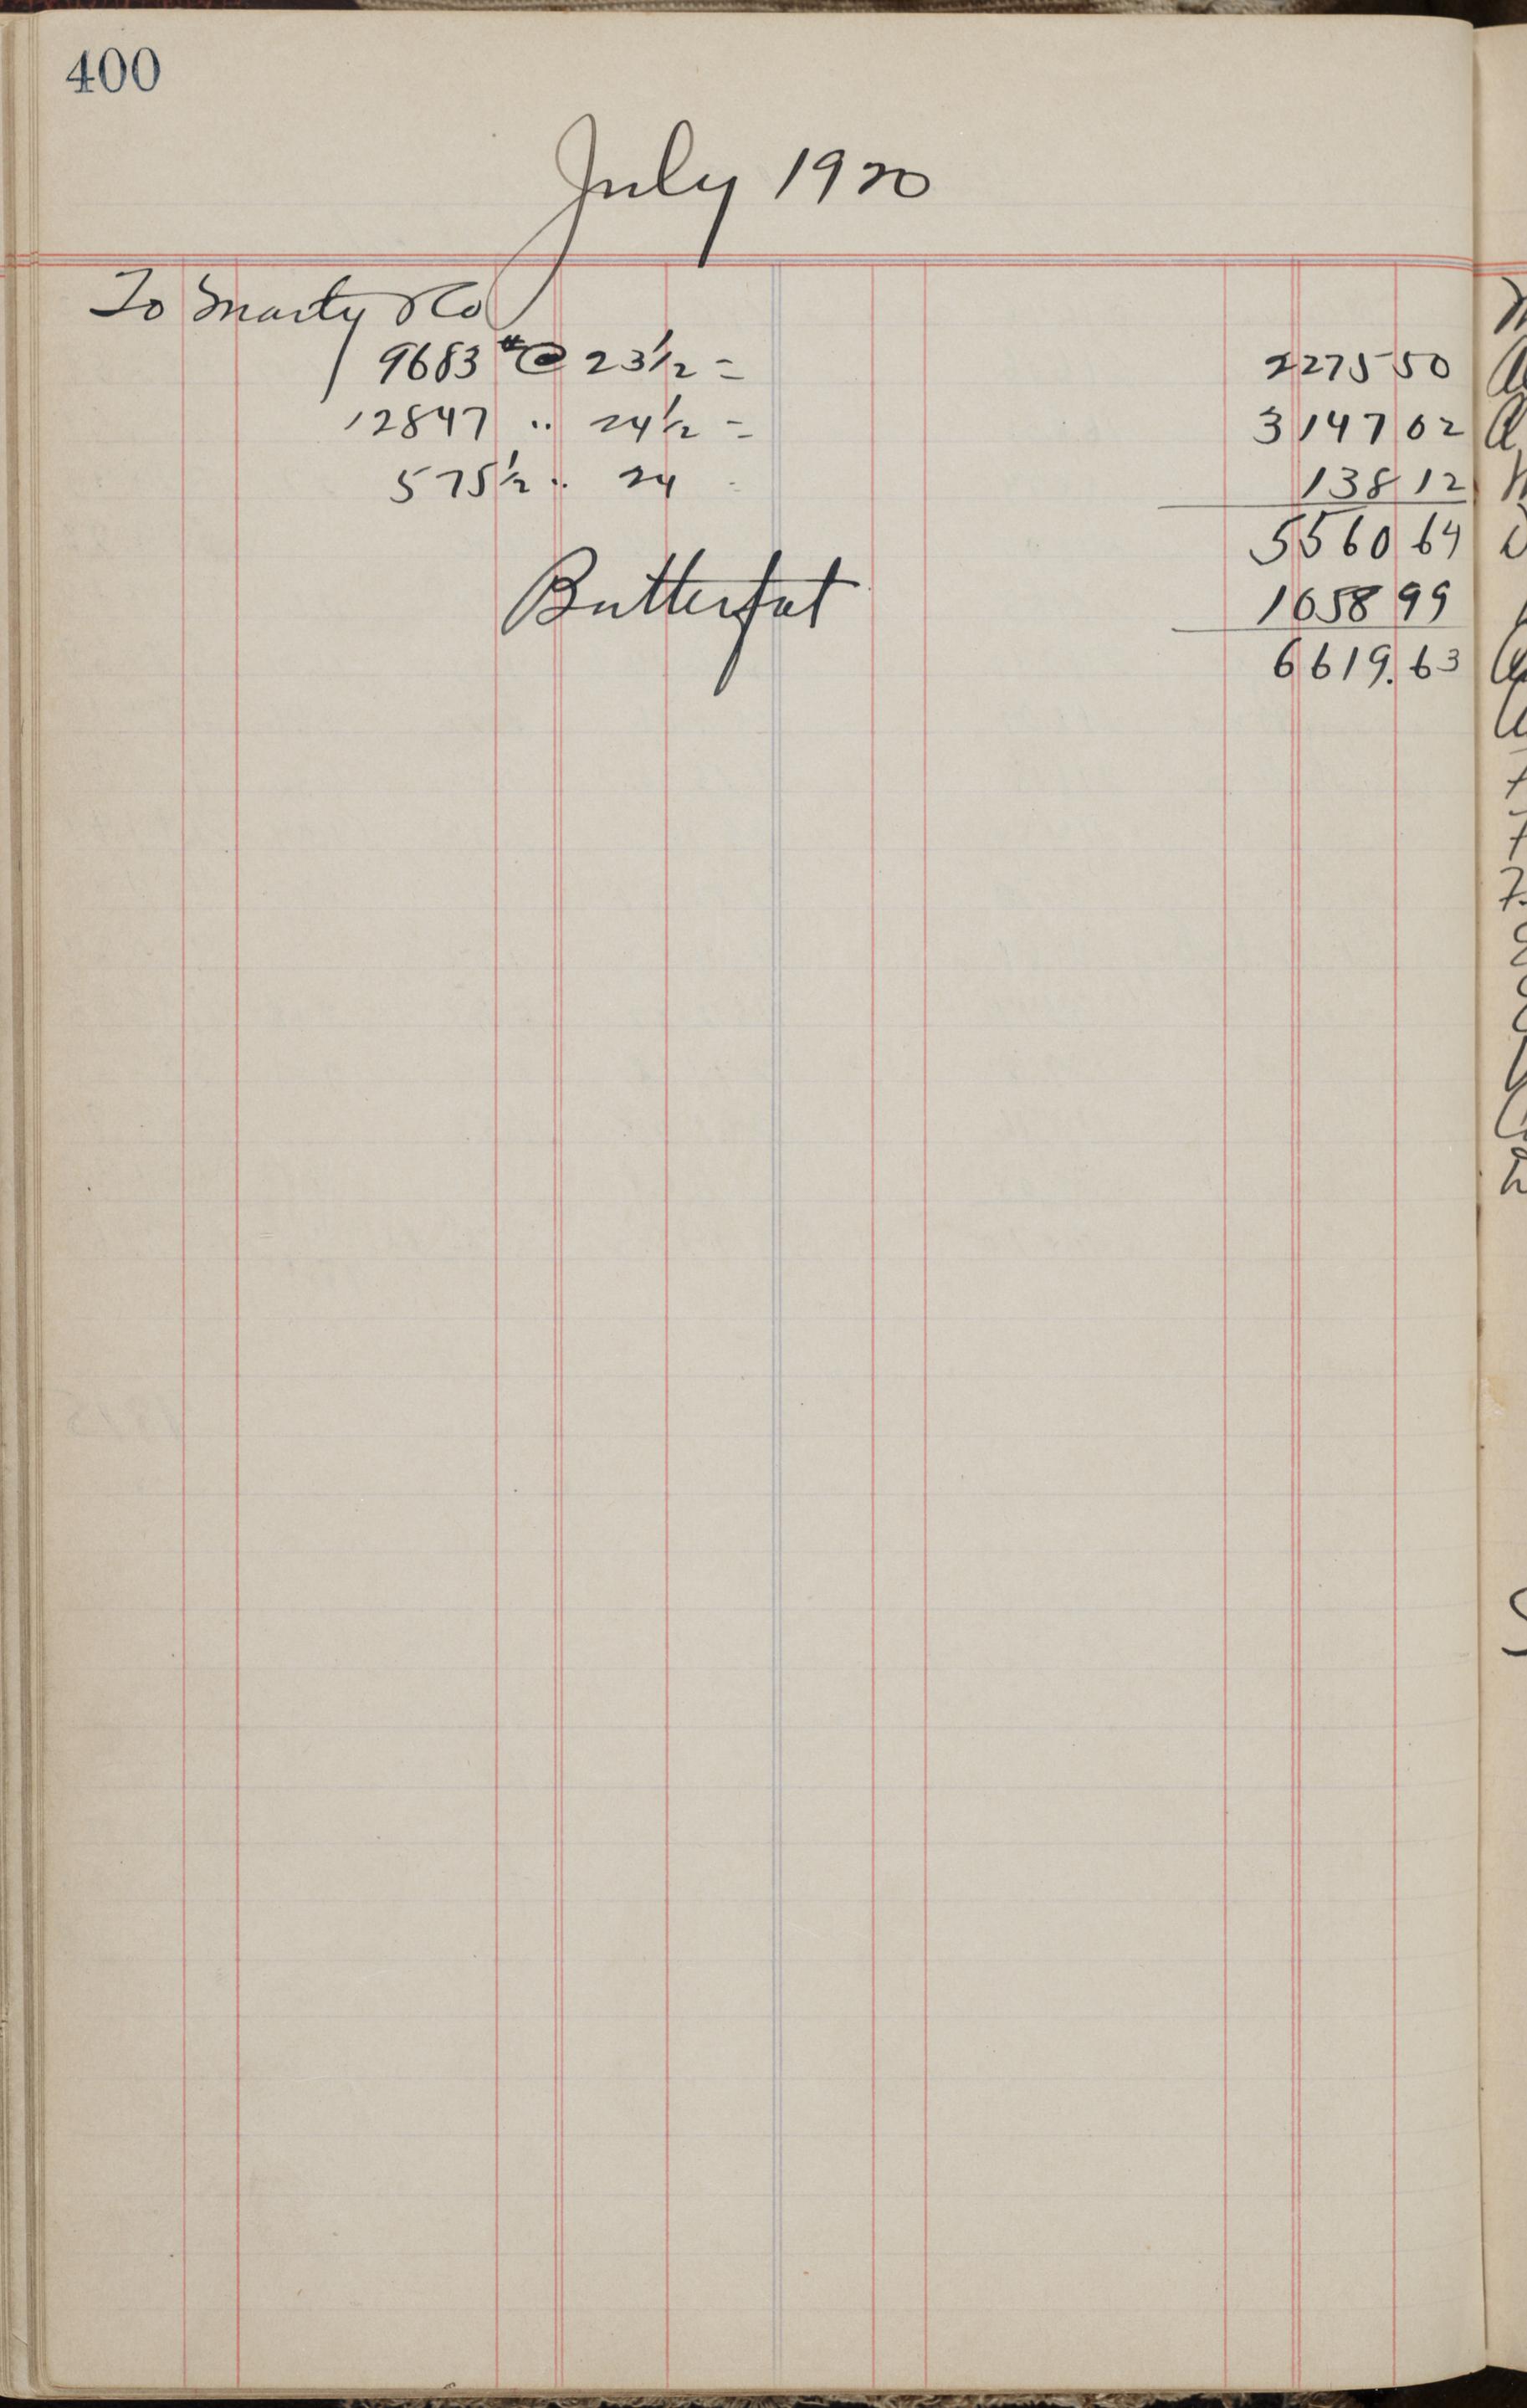 400
July 1920
To Marty & Co
9683 # @ 23 1/2 = 2275 50
12847 " 24 1/2 = 3147 02
575 1/2 " 24 = 138 12
5560 64
Butterfat 1058 99
6619.63